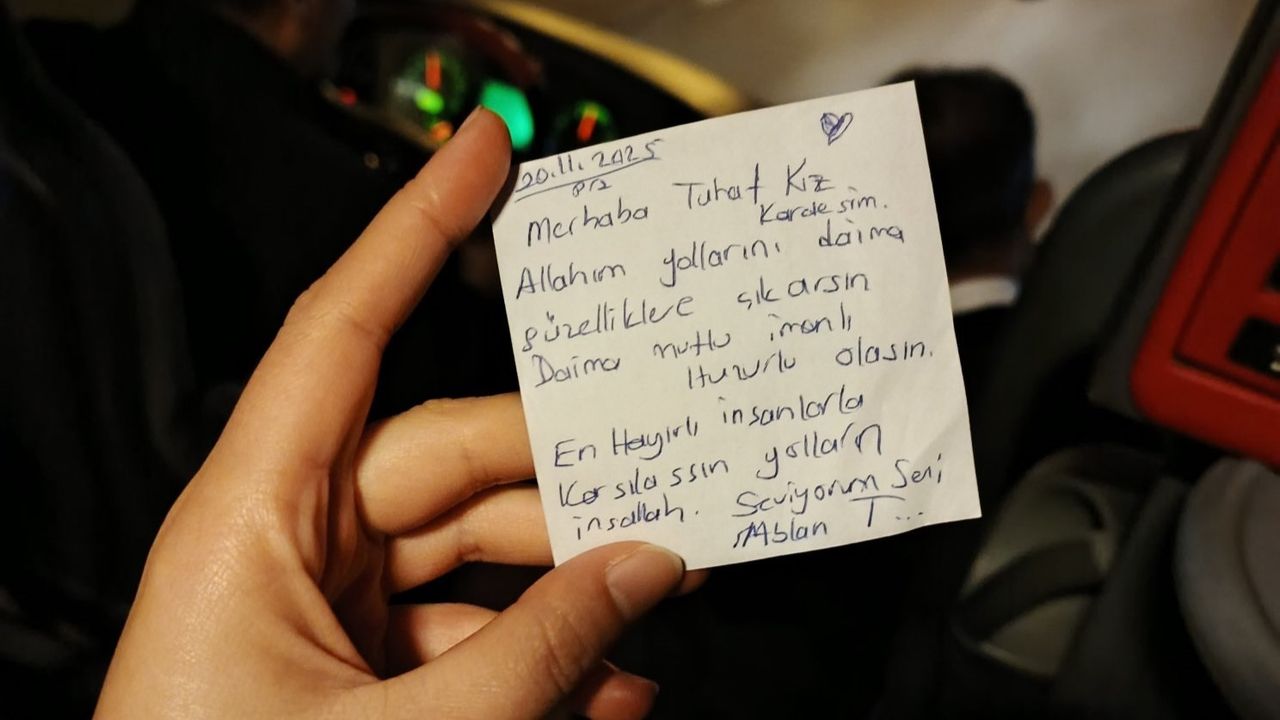 20.11.2025
Merhaba Tuhaf Kız
Kardesim.
Allahım yollarını daima
güzelliklere çıkarsın
Daima mutlu imanlı
Huzurlu olasın.
En Hayırlı insanlarla
Karsılassın yolların
insallah. Seviyorum Seni
Ablan T...